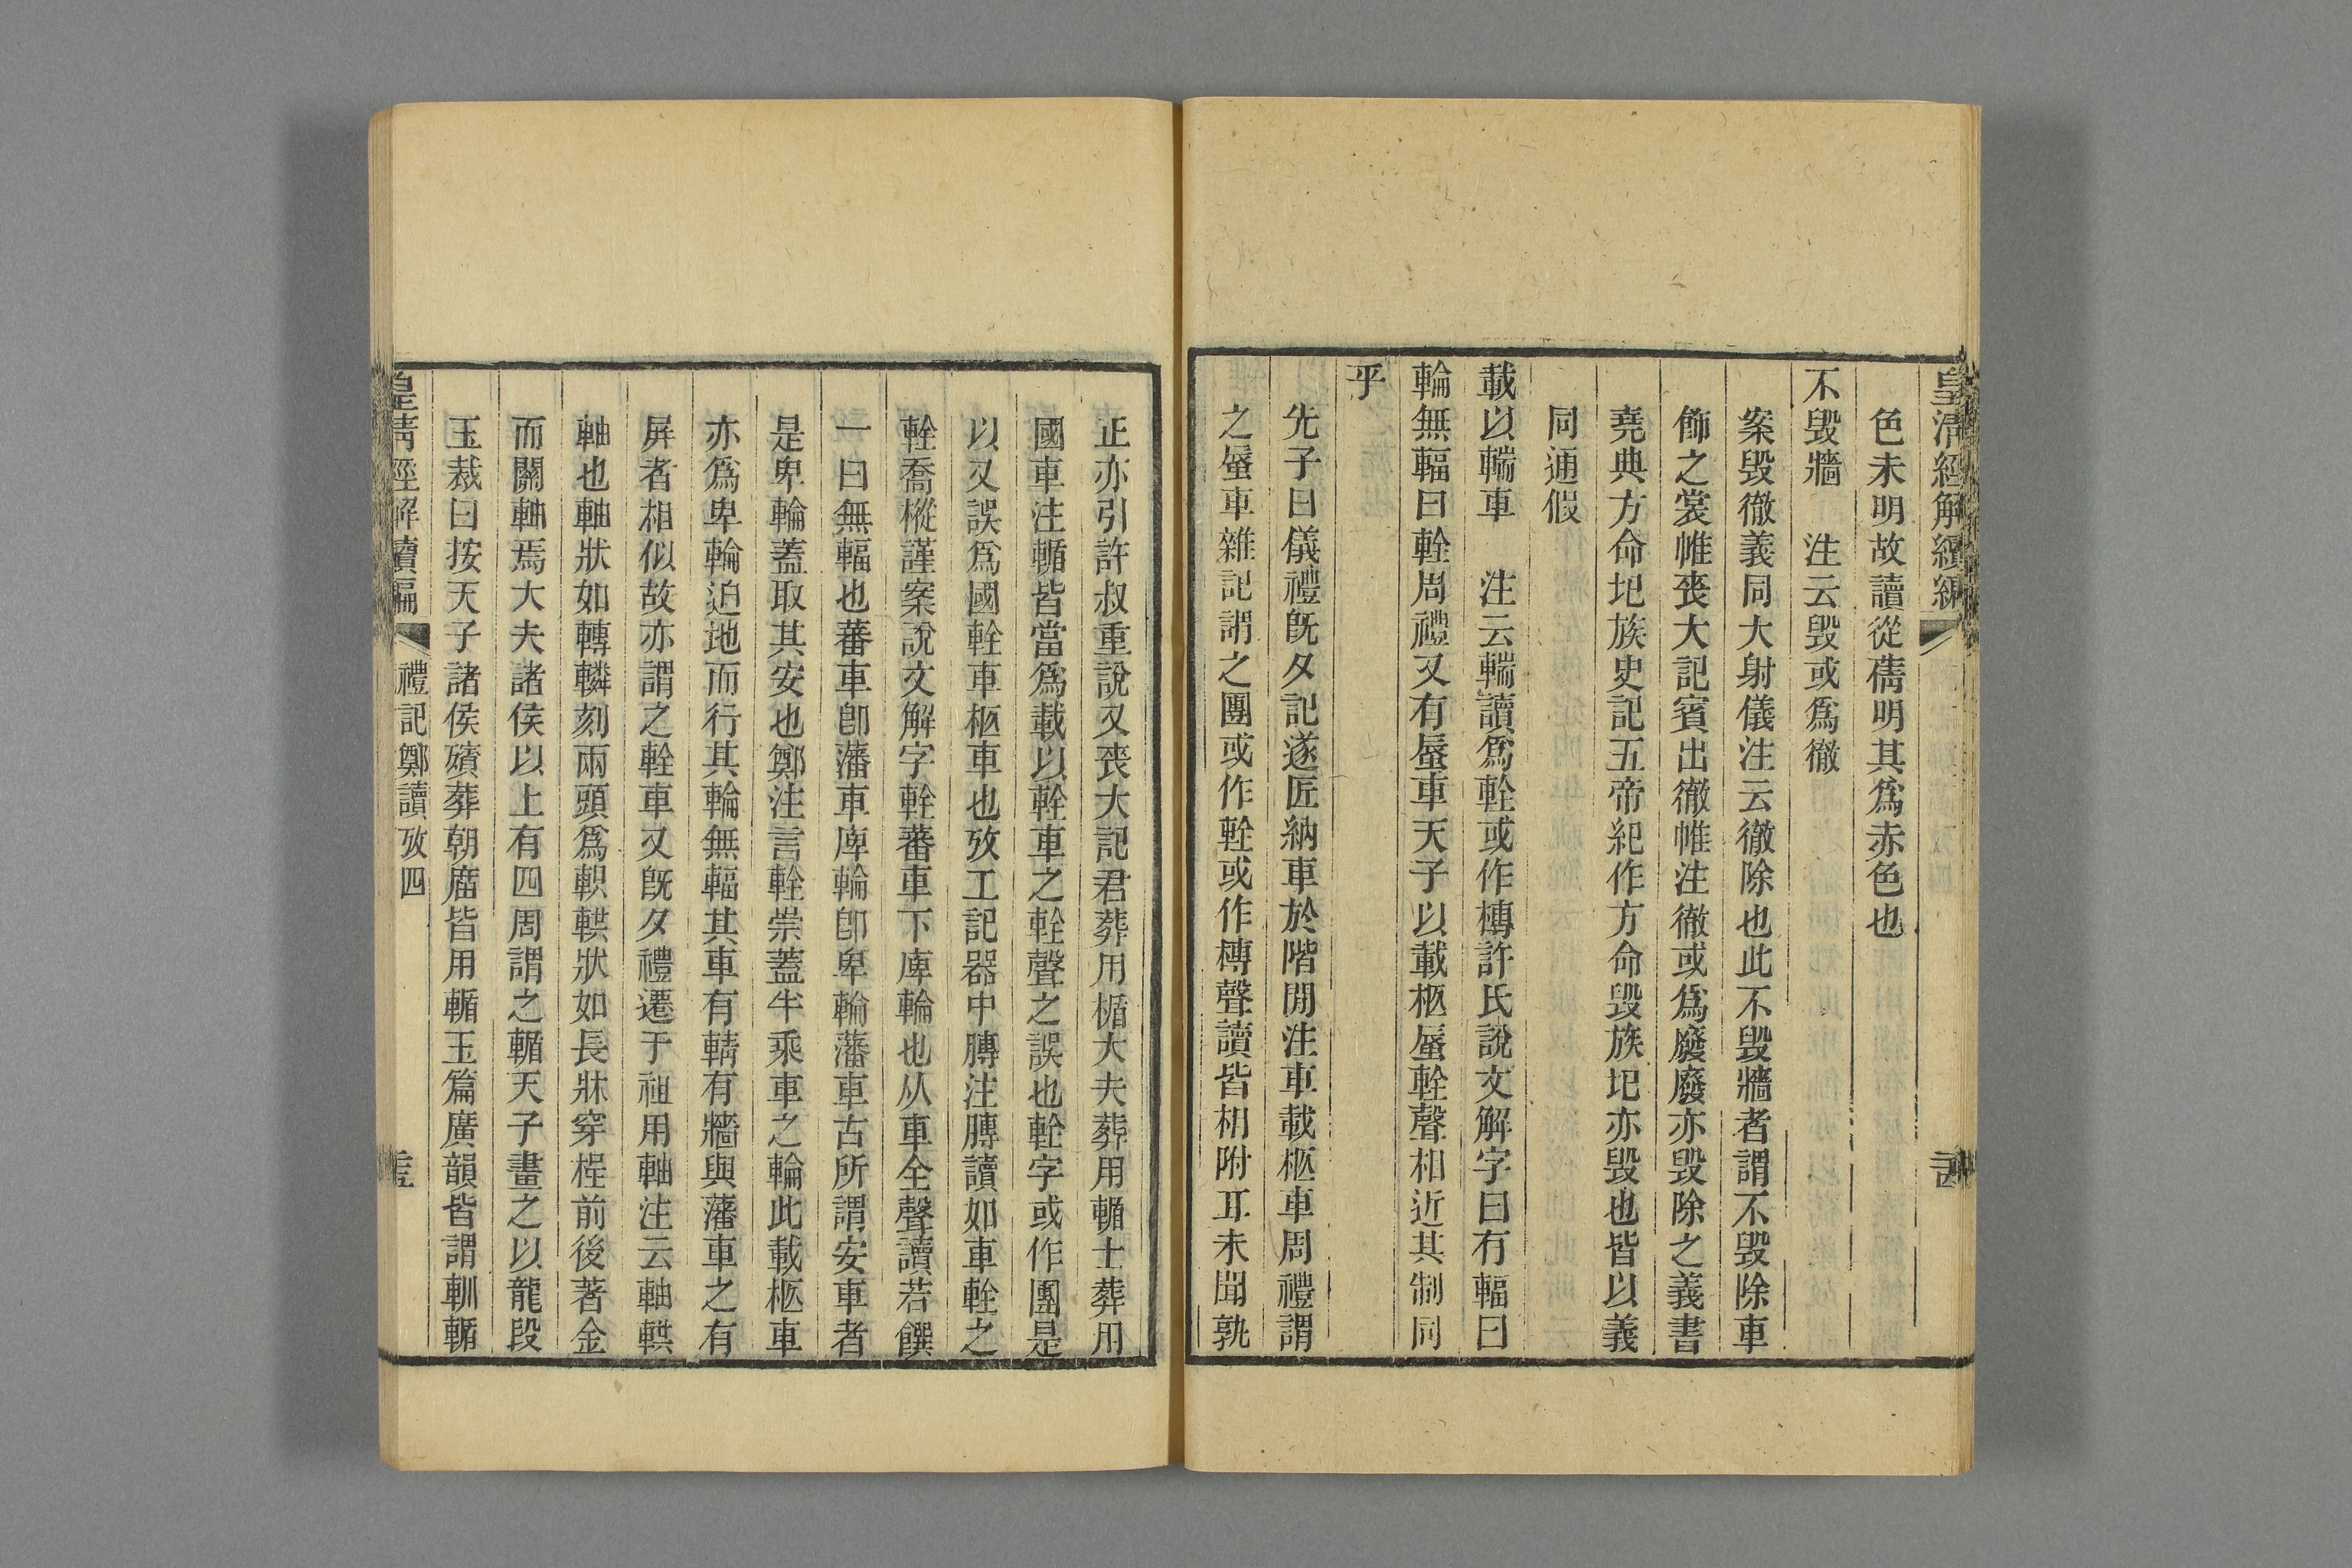 皇清經解續編
色未明故讀從儁明其爲赤色也
不毀牆　注云毀或爲徹
案毀徹義同大射儀注云徹除也此不毀牆者謂不毀除車
飾之裳帷喪大記賓出徹帷注徹或爲廢廢亦毀除之義書
堯典方命圮族史記五帝紀作方命毀族圮亦毀也皆以義
同通假
載以輲車　注云輲讀爲輇或作槫許氏說文解字曰有輻曰
輪無輻曰輇周禮又有蜃車天子以載柩蜃輇聲相近其制同
乎
先子曰儀禮旣夕記遂匠納車於階閒注車載柩車周禮謂
之蜃車雜記謂之團或作輇或作槫聲讀皆相附耳未聞孰
正亦引許叔重說又喪大記君葬用楯大夫葬用輴士葬用
國車注輴皆當爲載以輇車之輇聲之誤也輇字或作團是
以又誤爲國輇車柩車也攷工記器中膞注膞讀如車輇之
輇喬樅謹案說文解字輇蕃車下庳輪也从車全聲讀若饌
一曰無輻也蕃車卽藩車庳輪卽卑輪藩車古所謂安車者
是卑輪蓋取其安也鄭注言輇崇蓋半乘車之輪此載柩車
亦爲卑輪迫地而行其輪無輻其車有輤有牆與藩車之有
屏者相似故亦謂之輇車又旣夕禮遷于祖用軸注云軸輁
軸也軸狀如轉轔刻兩頭爲軹輁狀如長牀穿桯前後著金
而關軸焉大夫諸侯以上有四周謂之輴天子畫之以龍段
玉裁曰按天子諸侯殯葬朝廟皆用輴玉篇廣韻皆謂輁輴
皇清經解續編　禮記鄭讀攷四